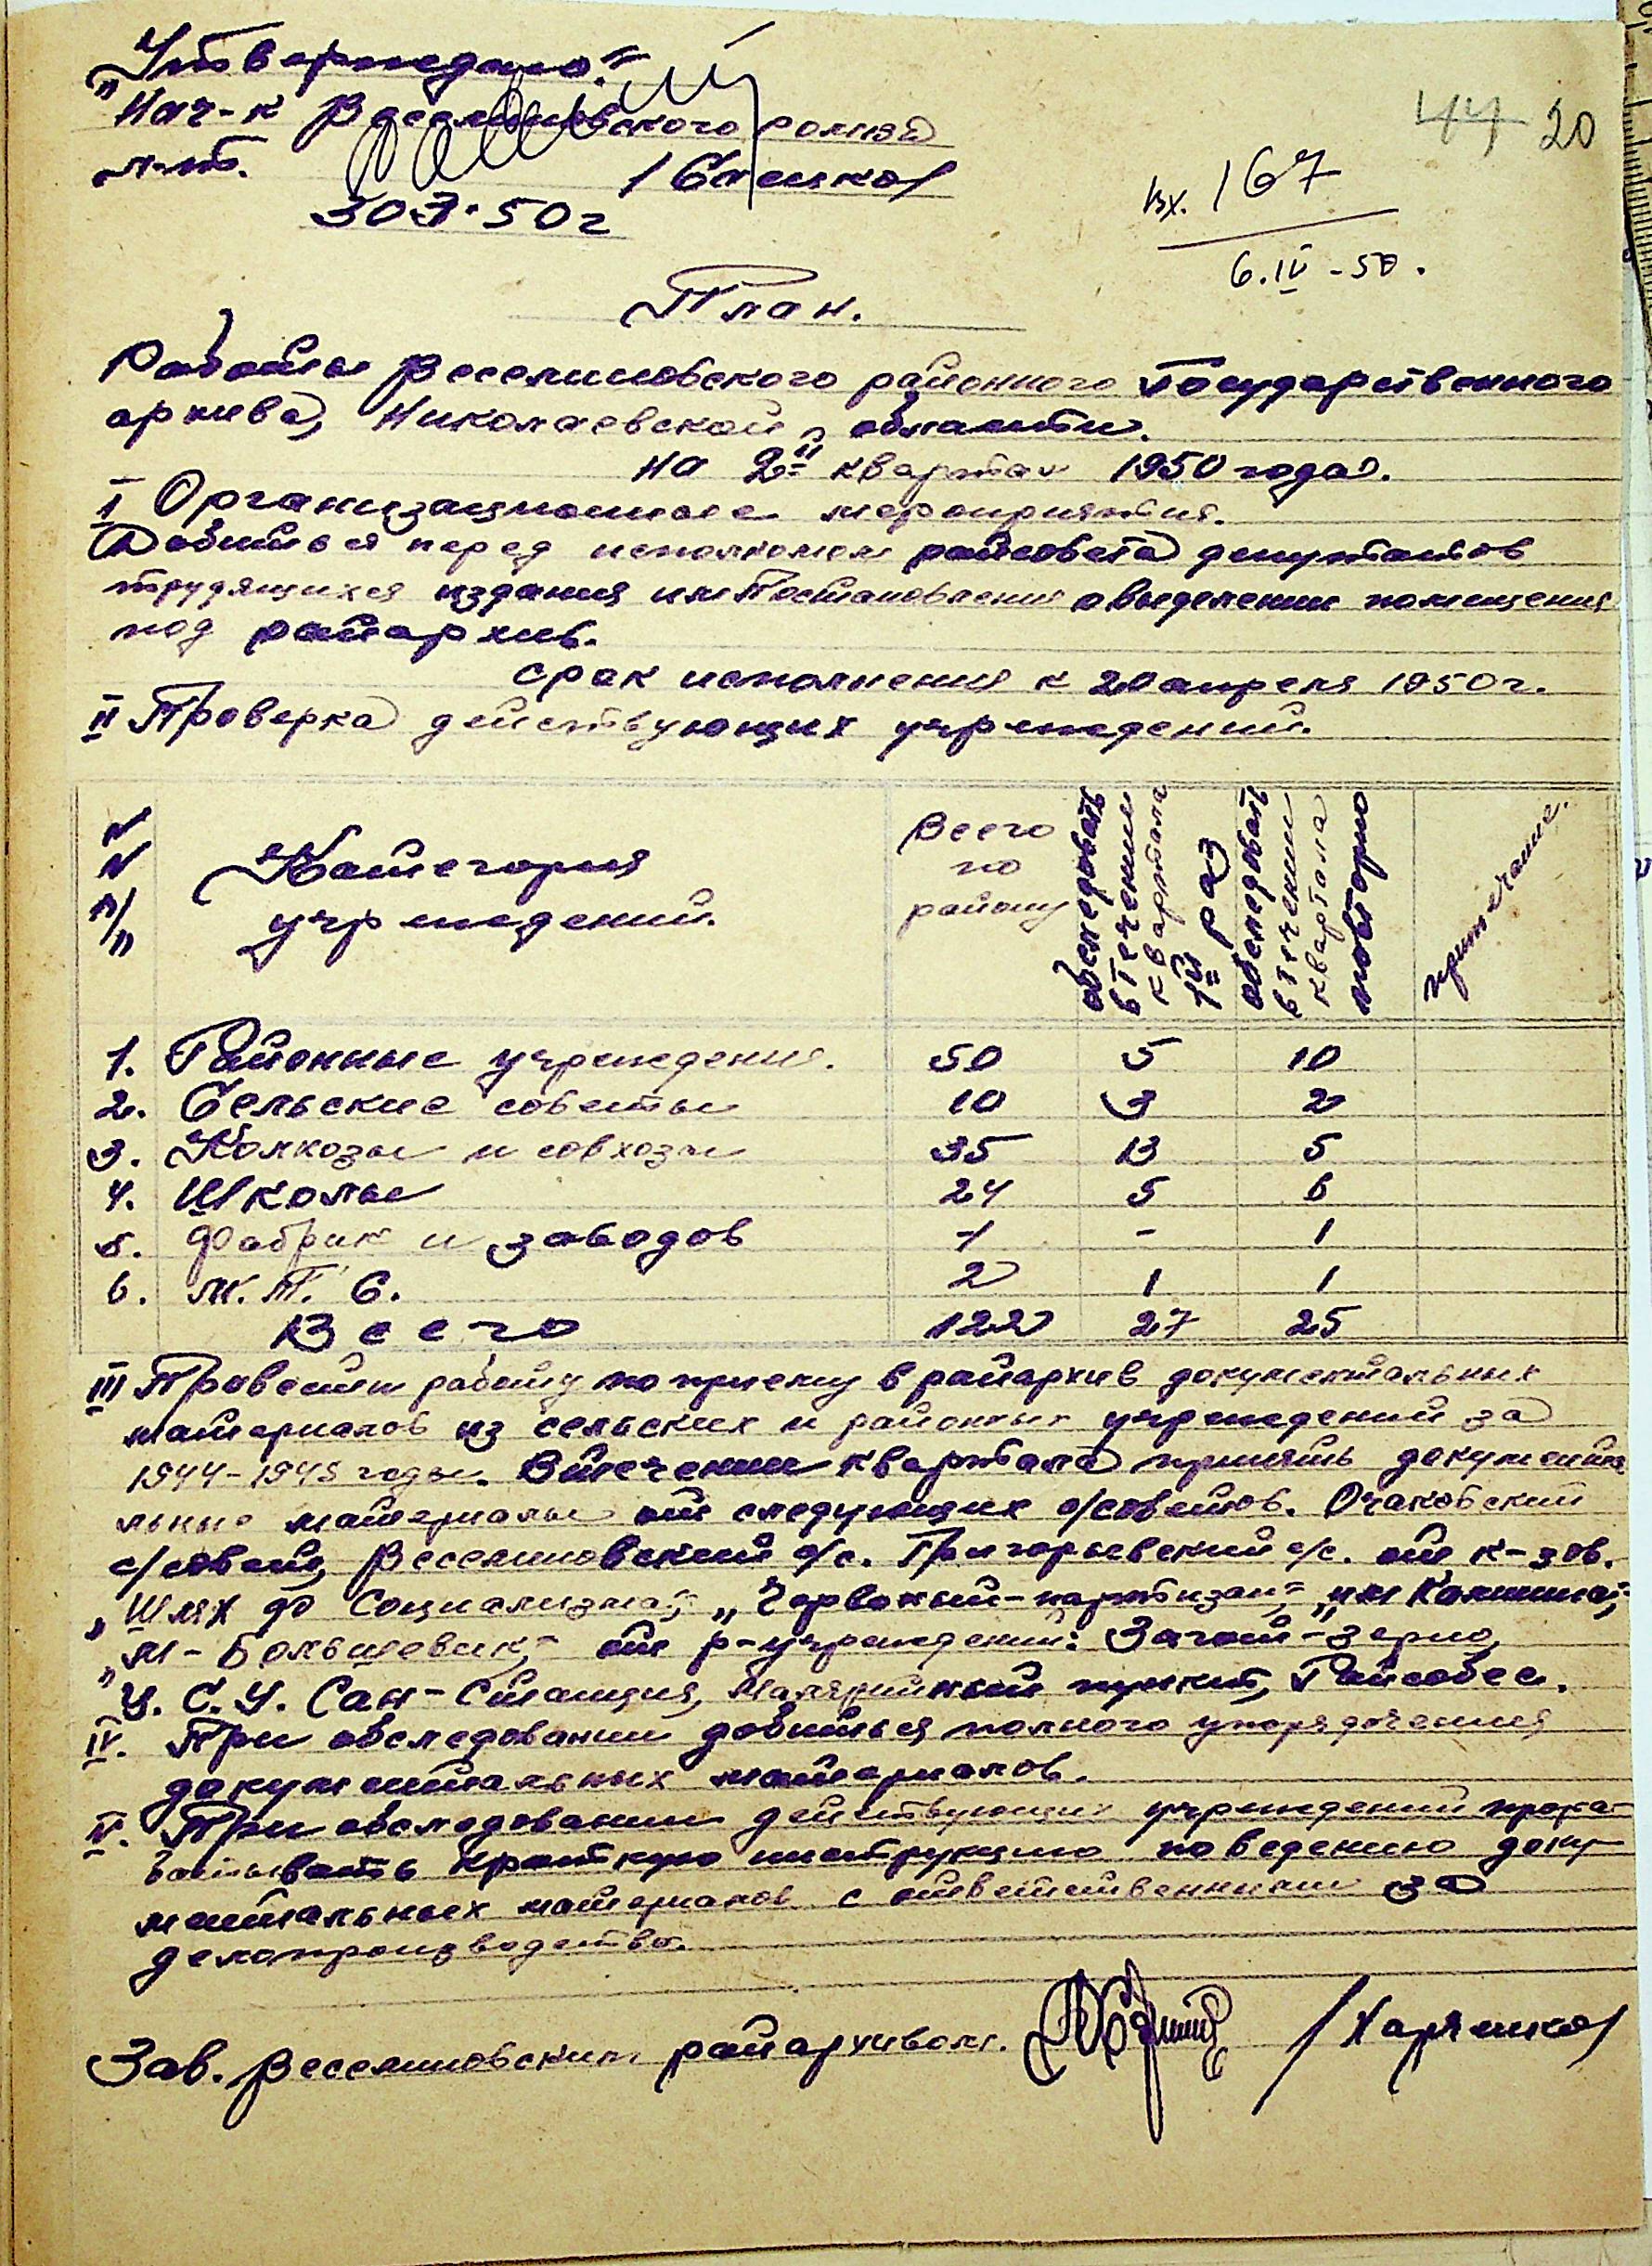 „Утверждаю"
Нач-к Веселиновского РОМГБ
л-т. /Сацико/
30 3. 50 г
44 20
вх. 167
6.IV-50.
План.
Работы Веселиновского районного Государственного
архива, Николаевской области.
на 2й квартал 1950 года.
I Организационные мероприятия.
Добиться перед исполкомом райсовета депутатов
трудящихся издания им Постановления о выделении помещения
под райархив.
срок исполнения к 20 апреля 1950 г.
II Проверка действующих учреждений.
N N п/п Категория учреждений. Всего по району обследовать в течении квартала 1й раз обследовать в течении квартала повторно примечание.
1. Районные учреждения. 50 5 10
2. Сельские советы 10 3 2
3. Колхозы и совхозы 35 13 5
4. Школы 24 5 6
5. Фабрик и заводов 1 - 1
6. М.Т.С. 2 1 1
Всего 122 27 25
III Провести работу по приему в райархив документальных
материалов из сельских и районных учреждений за
1944-1945 годы. В течении квартала принять документа
льные материалы от следующих с/советов. Очаковский
с/совет, Веселиновский с/с. Григорьевский с/с. от к-зов.
„Шлях до Социализма", „Червоный-партизан", „им Калинина",
„М-Большевик", от р-учреждений: Загот-зерно,
Ц.С.У. Сан-Станция, Малярийный пункт, Райсобес.
IV. При обследовании добиться полного упорядочения
документальных материалов.
V. При обследовании действующих учреждений прора-
батывать краткую инструкцию по ведению доку-
ментальных материалов с ответственными за
делопроизводство.
Зав. Веселиновским райархивом. /Харченко/